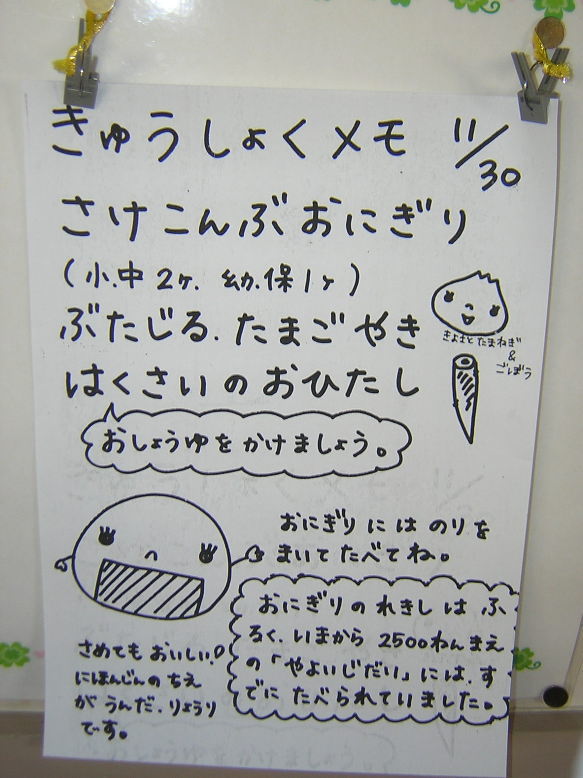 きゅうしょくメモ 11/30
さけこんぶおにぎり
(小.中 2ヶ. 幼.保1ヶ)
ぶたじる.たまごやき
はくさいのおひたし
きよさとたまねぎ
&
ごぼう
おしょうゆをかけましょう。
おにぎりにはのりを
まいてたべてね。
おにぎりのれきしは、ふ
るく、いまから2500ねんまえ
の「やよいじだい」には、す
でにたべられていました。
さめてもおいしい!
にほんじんのちえ
がうんだ、りょうり
です。